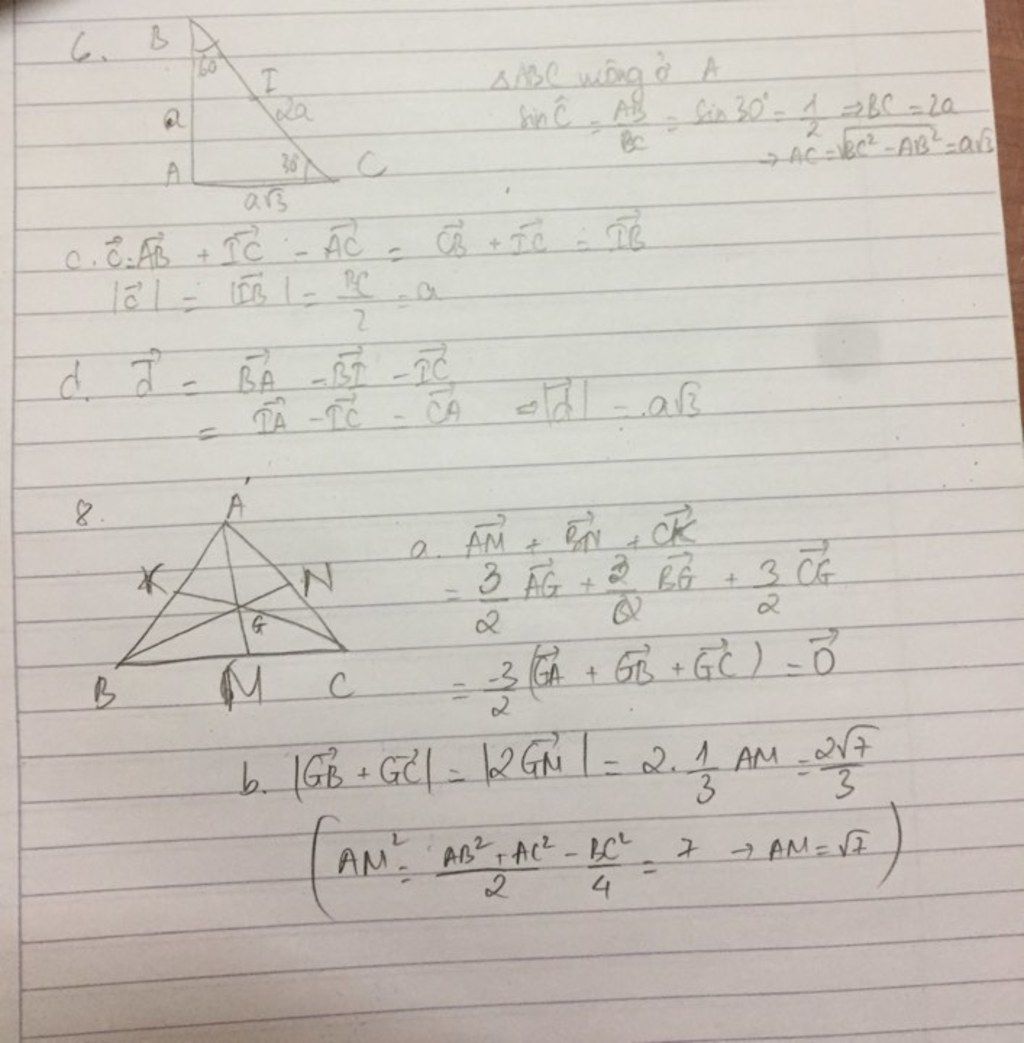 6.
B
60°
I
2a
a
A
30°
C
a√3
△ABC vuông ở A
sin Ĉ = AB/BC = sin 30° = 1/2 ⇒ BC = 2a
→ AC = √(BC² − AB²) = a√3
c. c⃗ = AB⃗ + IC⃗ − AC⃗ = CB⃗ + IC⃗ = IB⃗
|c⃗| = |IB⃗| = BC/2 = a
d. d⃗ = BA⃗ − BI⃗ − IC⃗
= IA⃗ − IC⃗ = CA⃗ ⇒ |d⃗| = a√3
8.
A
K
N
G
B
M
C
a. AM⃗ + BN⃗ + CK⃗
= 3/2 AG⃗ + 3/2 BG⃗ + 3/2 CG⃗
= -3/2 (GA⃗ + GB⃗ + GC⃗) = 0⃗
b. |GB⃗ + GC⃗| = |2GM⃗| = 2. 1/3 AM = 2√7/3
(AM² = (AB² + AC²)/2 − BC²/4 = 7 → AM = √7)